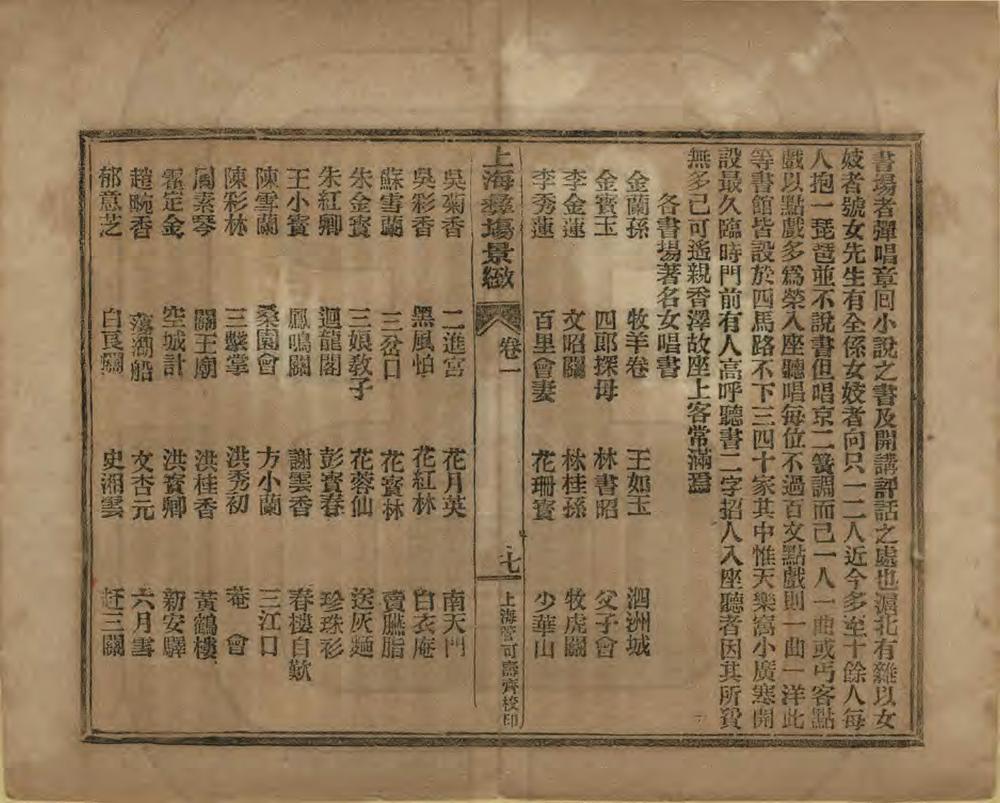 書場者彈唱章回小說之書及開講評話之處也滬北有雜以女
妓者號女先生有全係女妓者向只一二人近今多至十餘人每
人抱一琵琶並不說書但唱京二簧調而已一人一曲或丐客點
戲以點戲多爲榮入座聽唱每位不過百文點戲則一曲一洋此
等書館皆設於四馬路不下三四十家其中惟天樂窩小廣寒開
設最久臨時門前有人高呼聽書二字招人入座聽者因其所費
無多已可遙親香澤故座上客常滿焉
各書場著名女唱書
金蘭孫 牧羊卷 王如玉 泗洲城
金寶玉 四郎探母 林書昭 父子會
李金蓮 文昭關 林桂孫 牧虎關
李秀蓮 百里會妻 花珊寶 少華山
上海彝塲景緻 卷一 七 上海管可壽齊校印
吳菊香 二進宮 花月英 南天門
吳彩香 黑風怕 花紅林 白衣庵
蘇雪蘭 三岔口 花寶林 賣臙脂
朱金寶 三娘教子 花蓉仙 送灰麵
朱紅卿 迴龍閣 彭寶春 珍珠衫
王小寶 鳳鳴關 謝雲香 春樓自歎
陳雪蘭 桑園會 方小蘭 三江口
陳彩林 三擊掌 洪秀初 菴會
周素琴 關王廟 洪桂香 黃鶴樓
霍定金 空城計 洪寶卿 新安驛
趙畹香 蕩湖船 文杏元 六月雪
郁意芝 白良關 史湘雲 赶三關